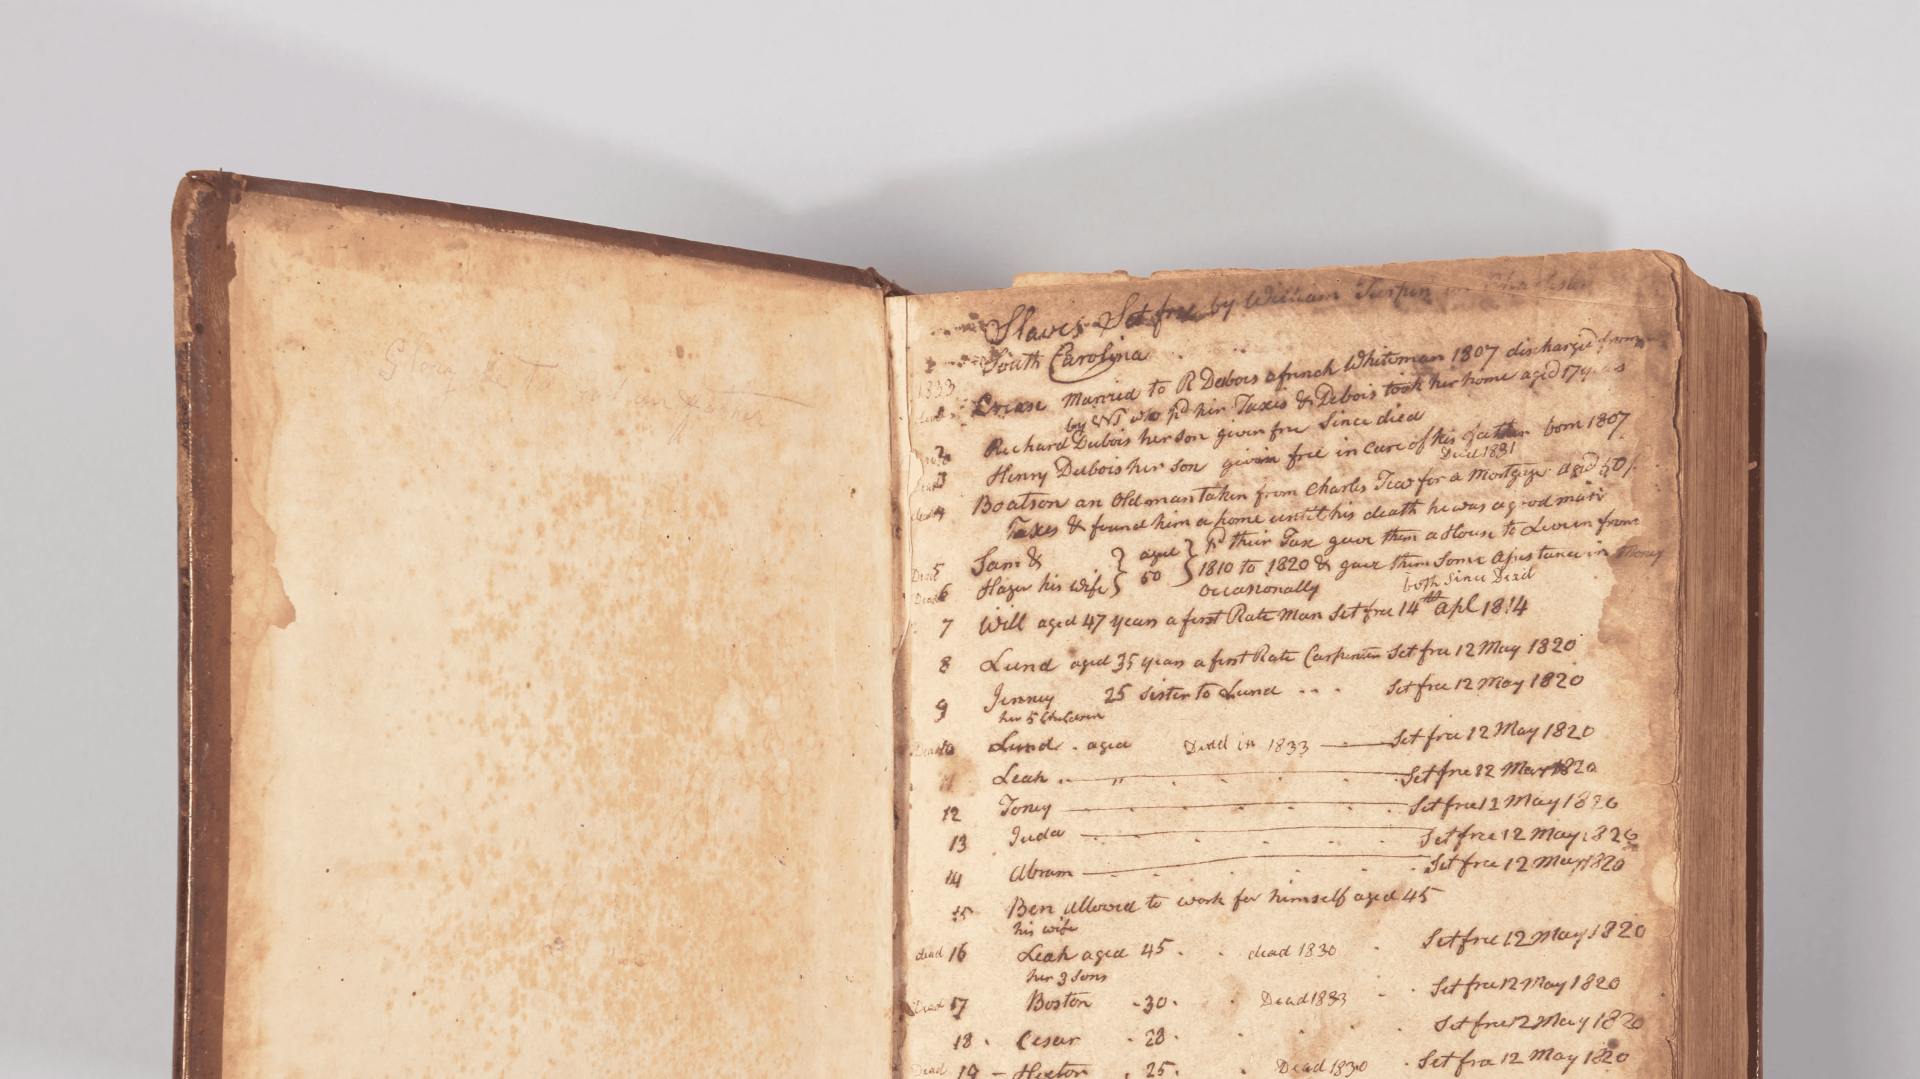 Glory be to
Slaves Set free by William Turpin in Charleston
South Carolina
1833
Married to R Dubois a french Whiteman 1807 discharged from
by WT who pd her Taxes & Debois took her home aged 17 years
2 Richard Dubois her son given free Since died
Dead 3 Henry Dubois her son given free in care of his father born 1807
Died 1831
dead 4 Boatson an Old man taken from Charles Tew for a Mortgage aged 50
Taxes & found him a home until his death he was a good man
Dead 5 Sam & } aged } pd their Tax gave them a House to Live in from
Dead 6 his wife } 50 } 1810 to 1820 & gave them Some Assistance in Money
occasionally both Since Dead
7 Will aged 47 years a first Rate Man Set free 14th Apl 1814
8 Lund aged 35 years a first Rate Carpenter Set free 12 May 1820
9 Jenney 25 sister to Lund Set free 12 May 1820
her 5 Children
Dead 10 Lund . aged Died in 1833 Set free 12 May 1820
11 Leah " Set free 12 May 1820
12 Toney Set free 12 May 1820
13 Juda Set free 12 May 1820
14 Abram Set free 12 May 1820
15 Ben allowed to work for himself aged 45
his wife
dead 16 Leah aged 45 . . dead 1830 . Set free 12 May 1820
her 3 Sons
Dead 17 Boston - 30 . . Dead 1833 . Set free 12 May 1820
18 . Cesar . 28 . Set free 12 May 1820
Dead 19 - . 25 . . Dead 1830 . Set free 12 May 1820